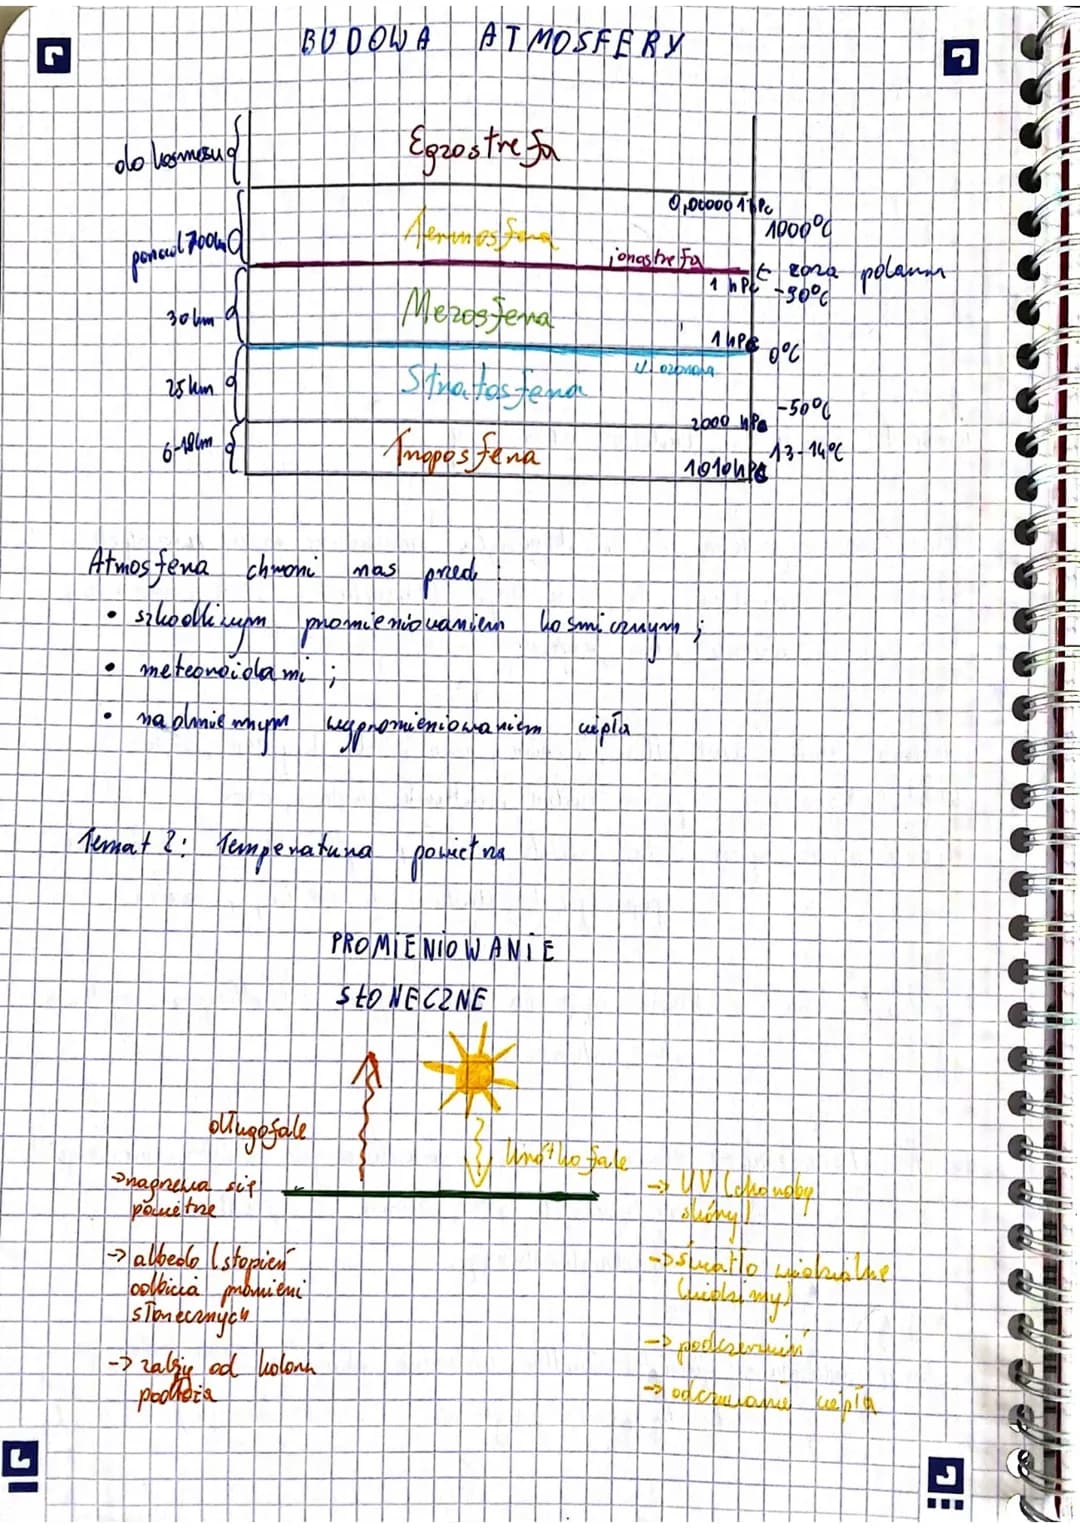 BUDOWA ATMOSFERY
do kosmosu
Egzostrefa
0,000001 hPa
1000°C
ponad 700km
Termosfera
jonostrefa
zorza polarna
1 hPa
-90°C
30 km
Mezosfera
1 hPa
0°C
w. ozonowa
25 km
Stratosfera
-50°C
2000 hPa
6-18km
Troposfera
13-14°C
1010hPa
Atmosfera chroni nas przed :
• szkodliwym promieniowaniem kosmicznym ;
• meteoroidami ;
• nadmiernym wypromieniowaniem ciepła
Temat 2: Temperatura powietrza
PROMIENIOWANIE
SŁONECZNE
długofale
krótkofale
→nagrzewa się
powietrze
→ albedo (stopień
odbicia promieni
słonecznych
→ zależy od koloru
podłoża
→ UV (choroby
skóry)
→światło widzialne
(widzimy)
→ podczerwień
→ odczuwanie ciepła